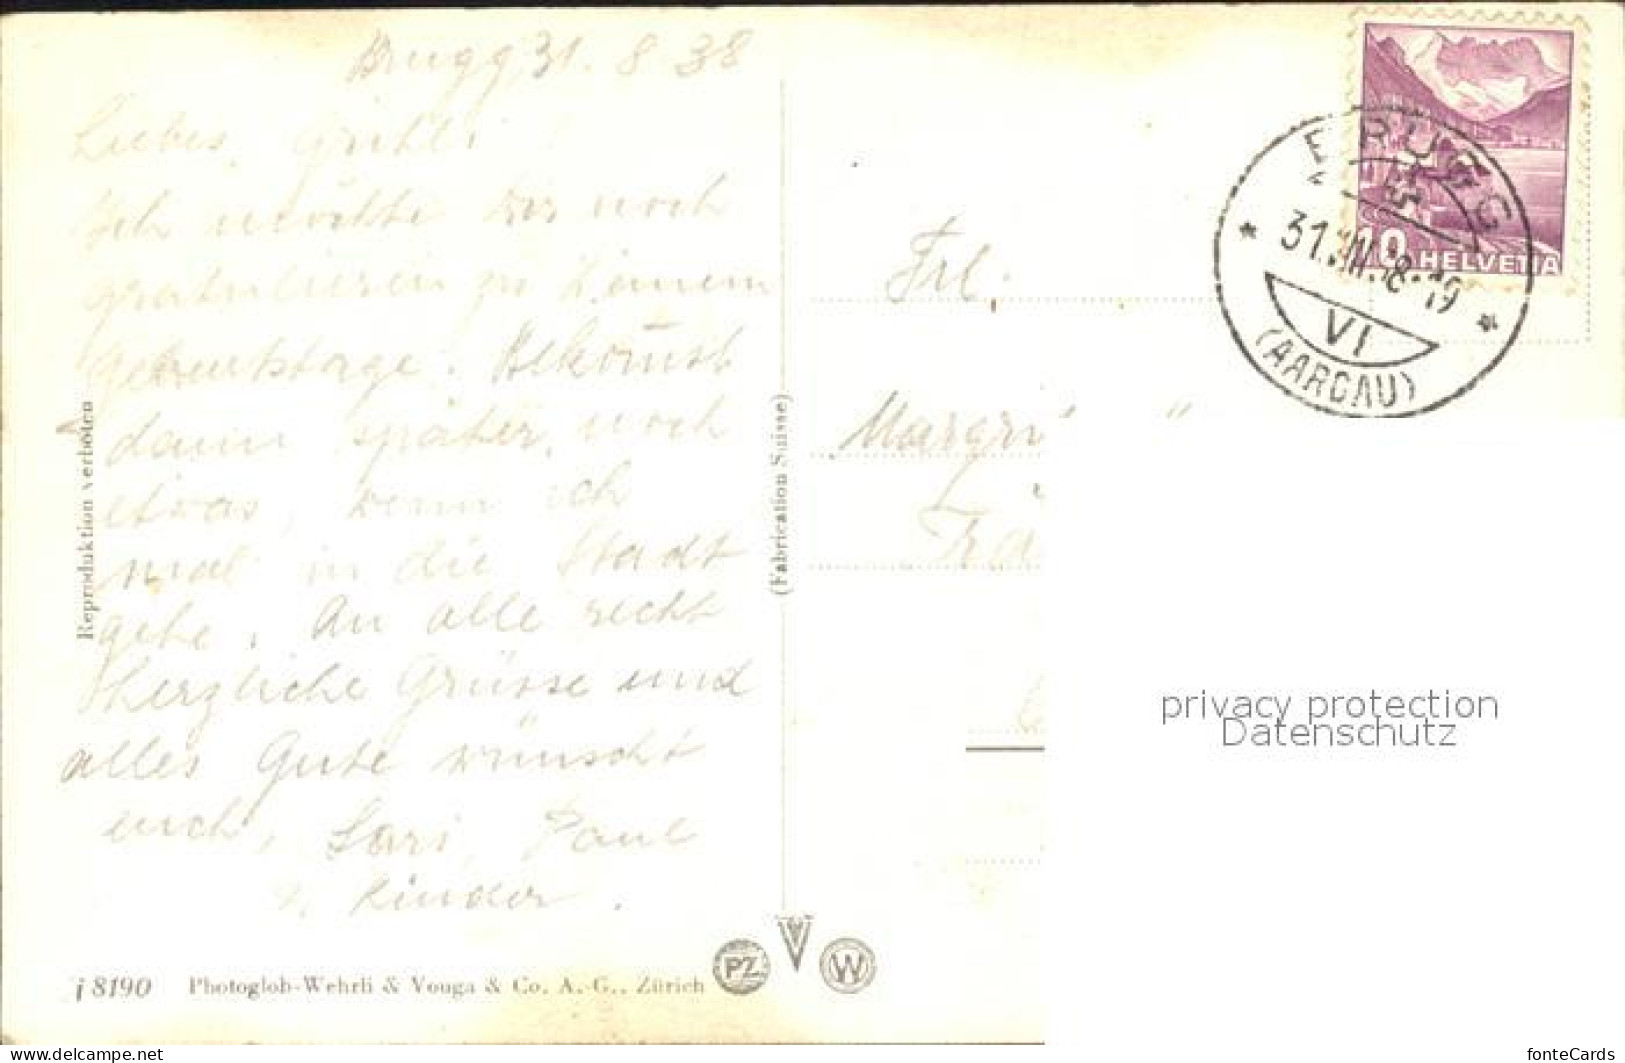 Brugg 31. 8 38
Liebes Gritli
Ich möchte Dir noch
gratulieren zu Deinem
Geburtstage. Bekommst
dann später noch
etwas, wenn ich
mal in die Stadt
gehe. An alle recht
herzliche Grüsse und
alles Gute wünscht
euch, Paul
Kinder.
Reproduktion verboten
(Fabrication Suisse)
j 8190 Photoglob-Wehrli & Vouga & Co. A.-G., Zürich
PZ V W
Frl.
Margri
BRUGG
31.VIII.38.-19
VI
(AARGAU)
10 HELVETIA
privacy protection
Datenschutz
www.delcampe.net
fonteCards